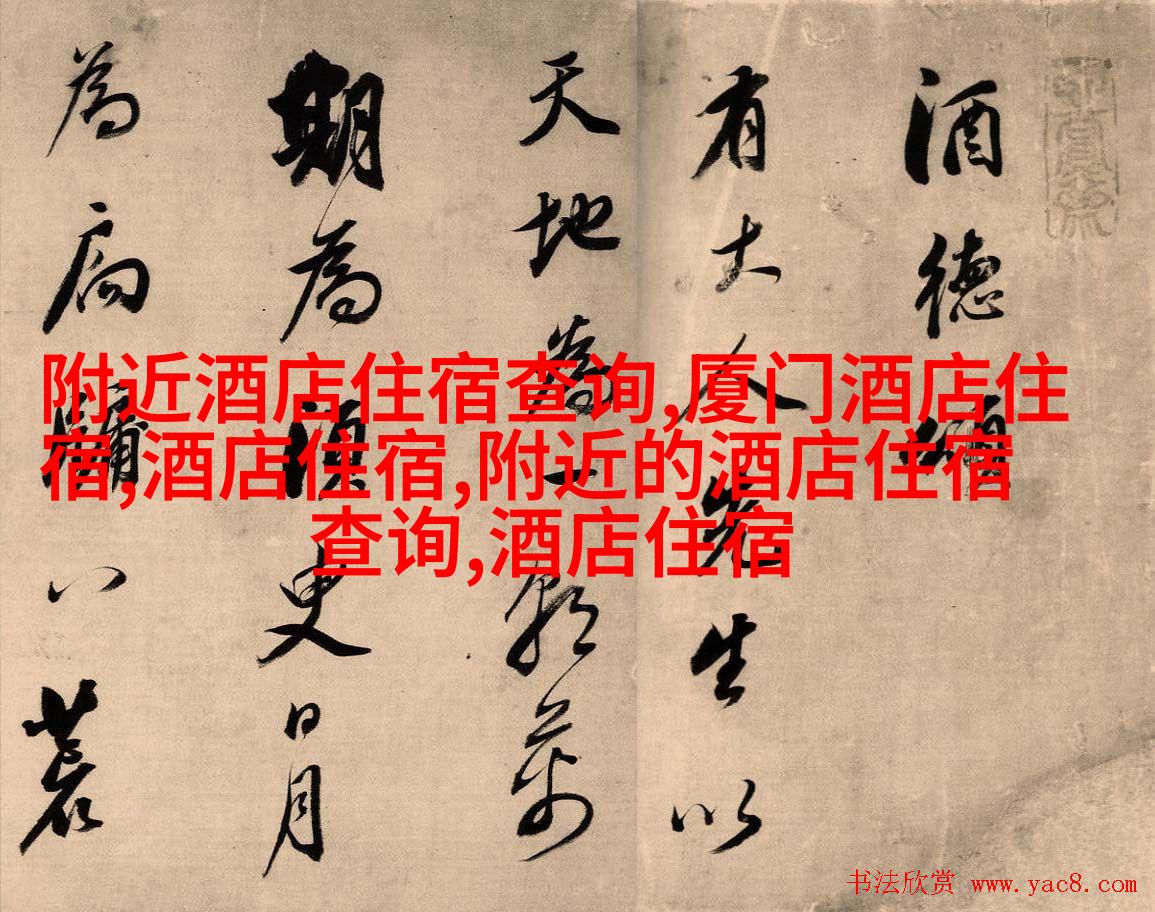 酒德頌
有大人先生以
天地為一朝萬
期為須臾日月
為扃牖八荒
附近酒店住宿查询,厦门酒店住
宿,酒店住宿,附近的酒店住宿
查询,酒店住宿
书法欣赏 www.yac8.com